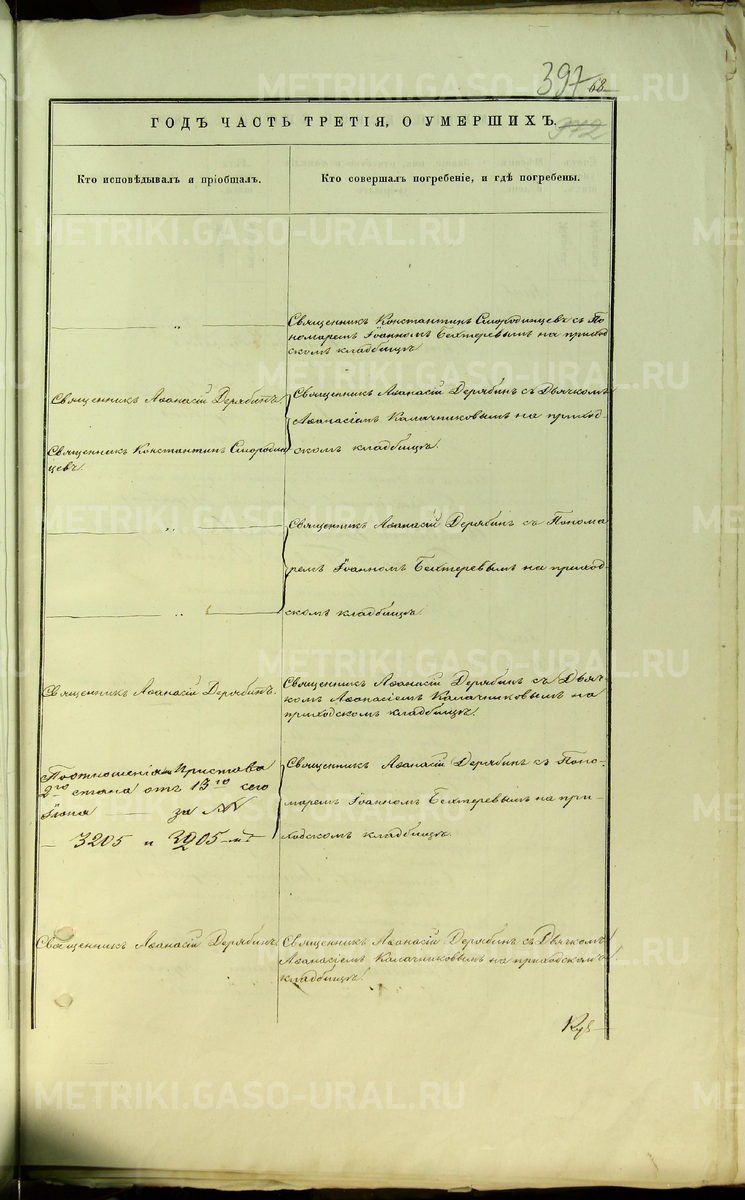 397
68
ГОДЪ ЧАСТЬ ТРЕТІЯ, О УМЕРШИХЪ.
372
Кто исповѣдывалъ и пріобщалъ.
Кто совершалъ погребеніе, и гдѣ погребены.
— „ —
Священникъ Константинъ Смородинцевъ съ По
номаремъ Іоанномъ Бехтеревымъ на приход
скомъ кладбищѣ.
Священникъ Аѳанасій Дерябинъ.
Священникъ Константинъ Смородин
цевъ.
Священникъ Аѳанасій Дерябинъ съ Дьячкомъ
Аѳанасіемъ Калачниковымъ на приход-
скомъ кладбищѣ.
— „ —
— „ —
Священникъ Аѳанасій Дерябинъ съ Понома
ремъ Іоанномъ Бехтеревымъ на приход-
скомъ кладбищѣ.
Священникъ Аѳанасій Дерябинъ.
Священникъ Аѳанасій Дерябинъ съ Дьяч-
комъ Аѳанасіемъ Калачниковымъ на
приходскомъ кладбищѣ.
По отношенія Пристава
2го стана отъ 13го сего
Іюня — за №№
— 3205 и 3905-мъ
Священникъ Аѳанасій Дерябинъ съ Поно-
маремъ Іоанномъ Бехтеревымъ на при-
ходскомъ кладбищѣ.
Священникъ Аѳанасій Дерябинъ.
Священникъ Аѳанасій Дерябинъ съ Дьячкомъ
Аѳанасіемъ Калачниковымъ на приходскомъ
кладбищѣ.
METRIKI.GASO-URAL.RU